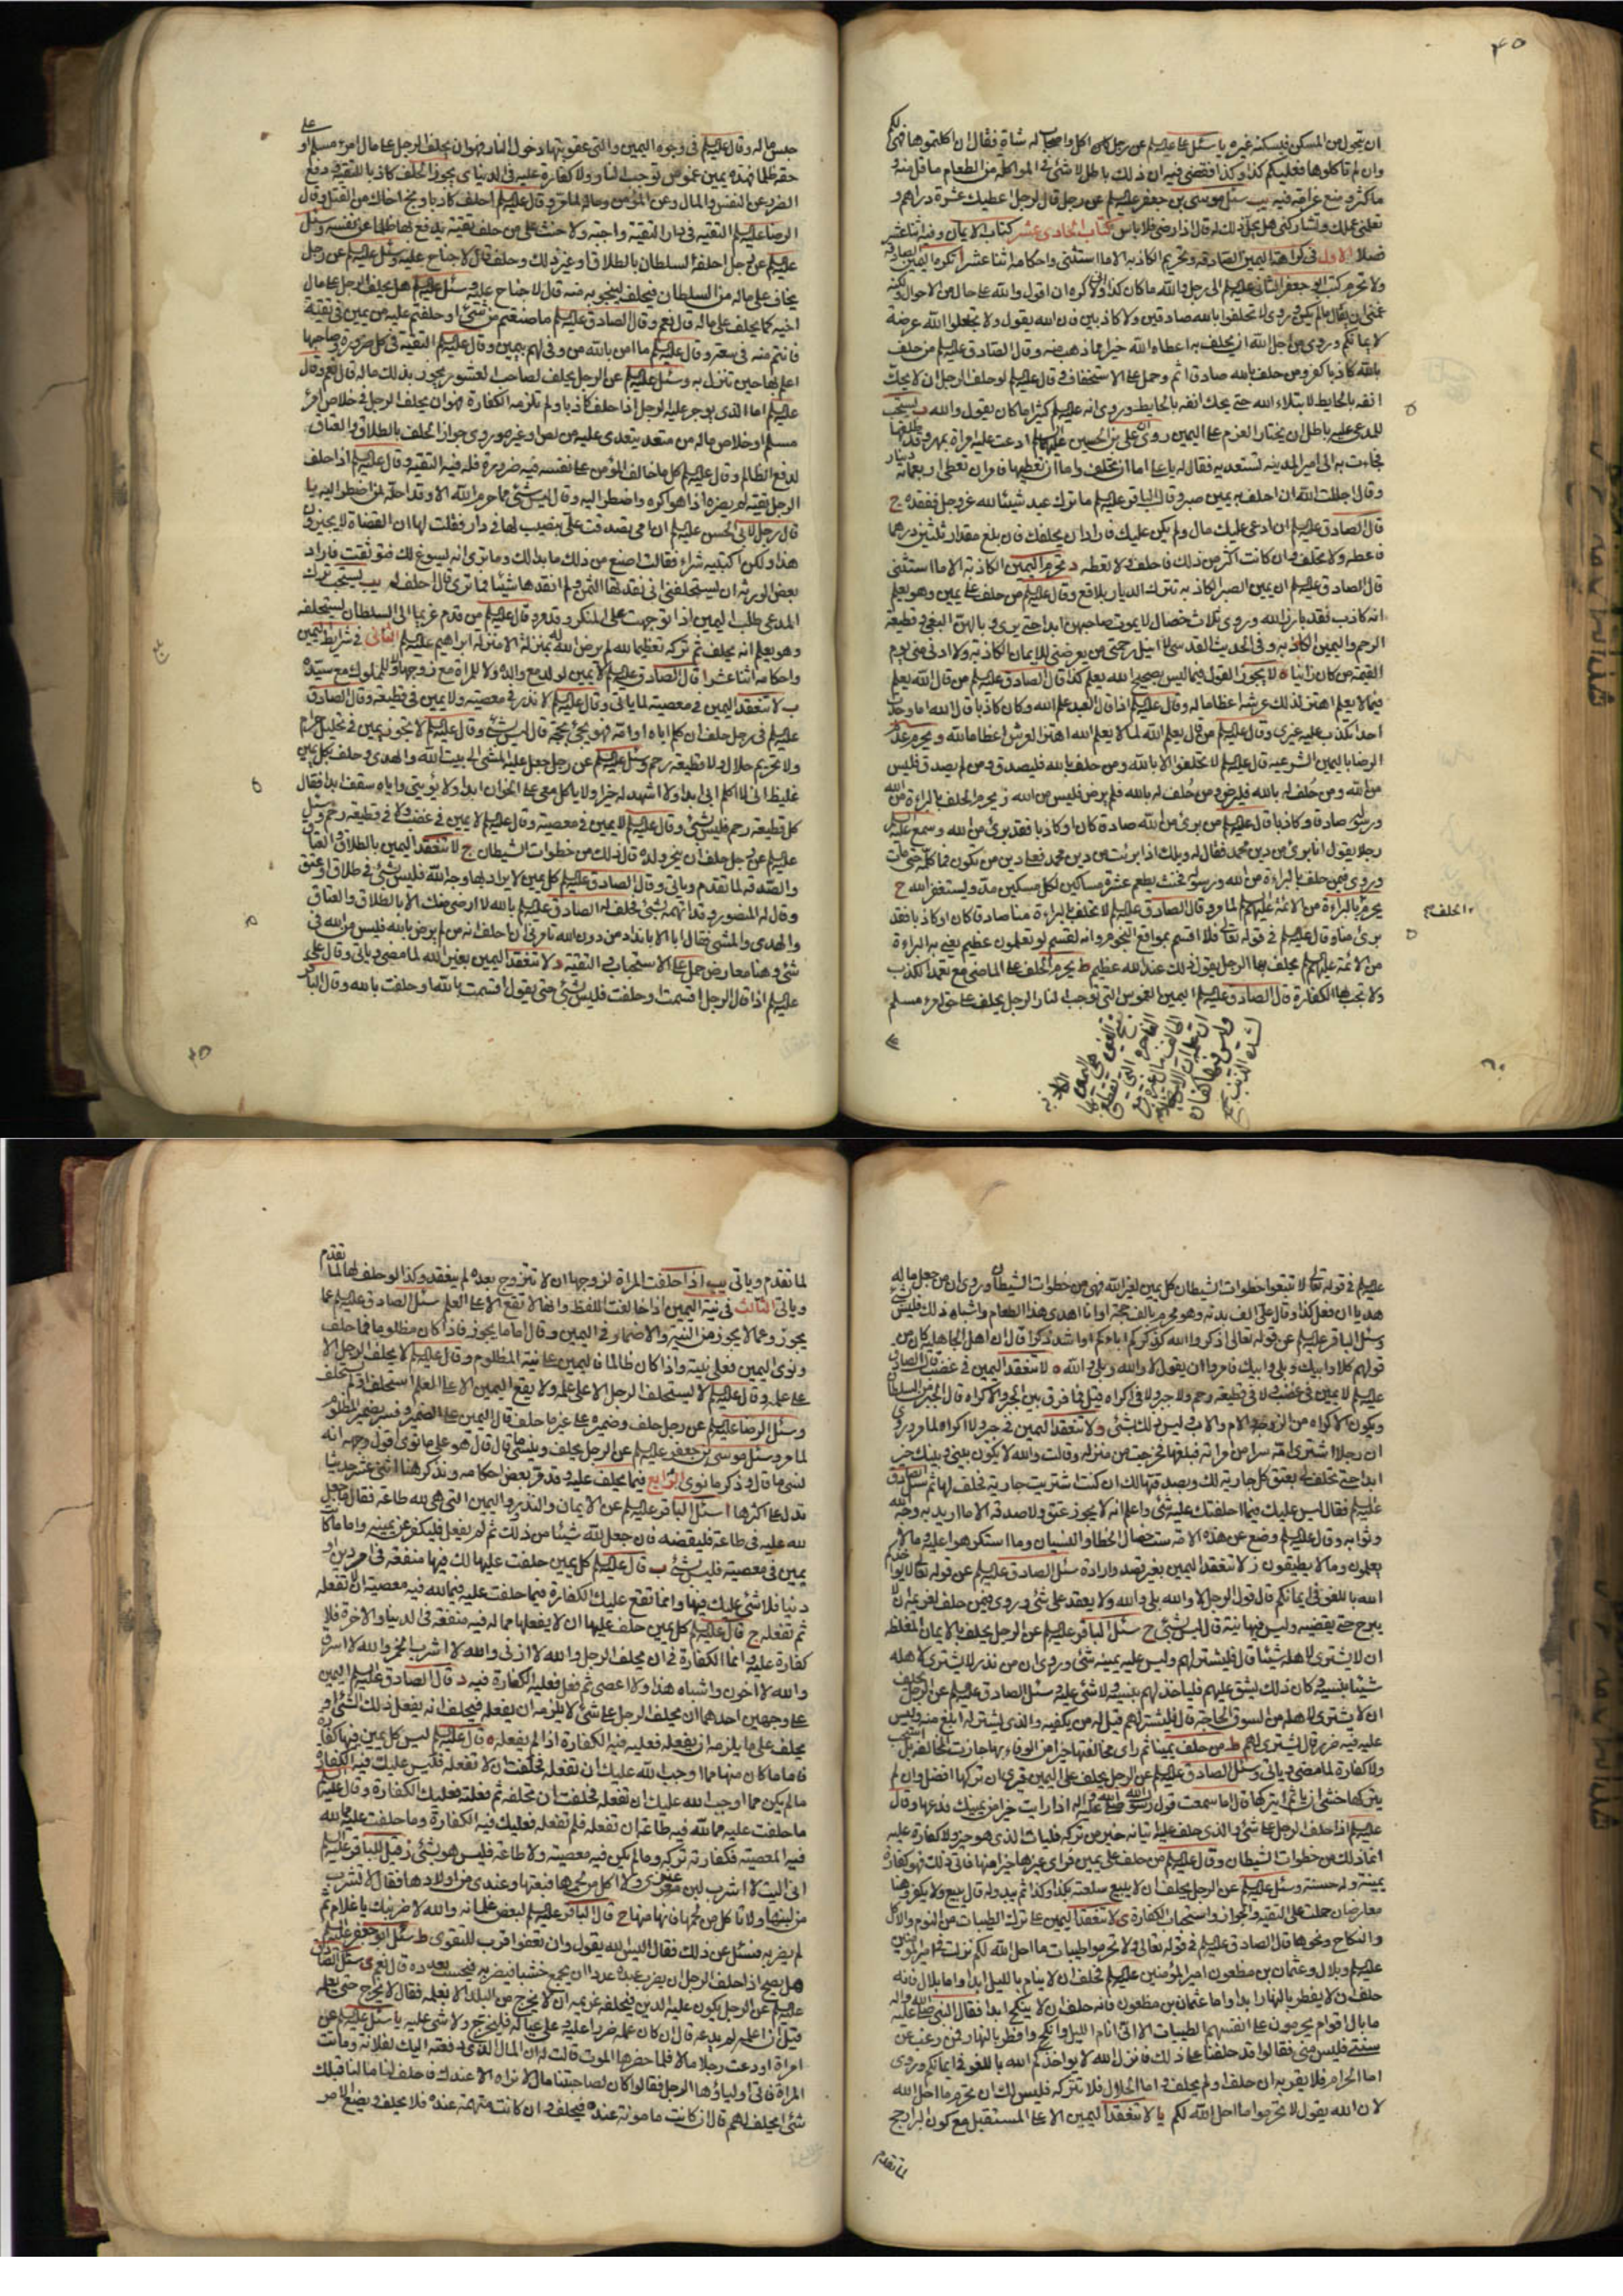 ان يتحول من المسكن فيسكنه غيره يا سئل عليه السلام عن رجل كان اكل واصحاب له شاة فقال ان اكلتموها فهي لكم
وان لم تاكلوها فعليكم كذا وكذا فقضى فيه ان ذلك باطل لا شئ في المواكلة من الطعام ما قل منه و
ما كثر ومنع غرامة فيه يب سئل موسى بن جعفر عليه السلام عن رجل قال لرجل اعطيك عشرة دراهم و
تعلمني عملك وتشاركني هل يحل ذلك له قال اذا رضي فلا باس كتاب الحادي عشر كتاب الايمان وفيه اثنا عشر
فصلا الاول في كراهة اليمين الصادقة وتحريم الكاذبة الا ما استثنى واحكامه اثنا عشر ا تكره اليمين الصادقة
ولا تحرم كتب ابو جعفر الثاني عليه السلام الى رجل والله ما كان كذا واني لاكره ان اقول والله على حال من الاحوال ولكنه
غمني ان يقال ما لم يكن وروي لا تحلفوا بالله صادقين ولا كاذبين فان الله يقول ولا تجعلوا الله عرضة
لايمانكم وروي من اجل الله ان يحلف به اعطاه الله خيرا مما ذهب منه وقال الصادق عليه السلام من حلف
بالله كاذبا كفر ومن حلف بالله صادقا اثم وحمل على الاستخفاف وقال عليه السلام لو حلف الرجل ان لا يحك
انفه بالحايط لابتلاه الله حتى يحك انفه بالحايط وروي انه عليه السلام كثيرا ما كان يقول والله ب يستحب
للمدعى عليه باطل ان يختار الغرم على اليمين روي ان علي بن الحسين عليهما السلام ادعت عليه امراة بمهر وقد طلقها
فجاءت به الى امير المدينة تستعديه فقال له يا علي اما ان تحلف واما ان تعطيها فامر ان تعطى اربعمائة دينار
وقال اجللت الله ان احلف به يمين صبر وقال الباقر عليه السلام ما ترك عبد شيئا لله عز وجل ففقده ج
قال الصادق عليه السلام ان ادعى عليك مال ولم يكن عليك فاراد ان يحلفك فان بلغ مقدار ثلثين درهما
فاعطه ولا تحلف وان كانت اكثر من ذلك فاحلف ولا تعطه د تحرم اليمين الكاذبة الا ما استثنى
قال الصادق عليه السلام ان يمين الصبر الكاذبة تترك الديار بلاقع وقال عليه السلام من حلف على يمين وهو يعلم
انه كاذب فقد بارز الله وروي ثلاث خصال لا يموت صاحبهن ابدا حتى يرى وبالهن البغي وقطيعة
الرحم واليمين الكاذبة وفي الحديث القدسي لا انيل رحمتي من يعرضني للايمان الكاذبة ولا ادني مني يوم
القيمة من كان زانيا ه لا يجوز القول فيما ليس بصحيح الله يعلم كذا قال الصادق عليه السلام من قال الله يعلم
فيما لا يعلم اهتز لذلك عرشه اعظاما له وقال عليه السلام اذا قال العبد علم الله وكان كاذبا قال الله اما وجدت
احدا تكذب عليه غيري وقال عليه السلام من قال يعلم الله لما لا يعلم الله اهتز العرش اعظاما لله و يحرم عدم
الرضا باليمين الشرعية قال عليه السلام لا تحلفوا الا بالله ومن حلف بالله فليصدق ومن لم يصدق فليس
من الله ومن حُلف له بالله فليرض ومن حُلف له بالله فلم يرض فليس من الله ز يحرم الحلف بالبراءة من الله
ورسوله صادقا وكاذبا قال عليه السلام من برئ من الله صادقا كان او كاذبا فقد برئ من الله وسمع عليه السلام
رجلا يقول انا برئ من دين محمد فقال له ويلك اذا برئت من دين محمد فعلى دين من تكون فما كلمه حتى مات
وروي فيمن حلف بالبراءة من الله ورسوله فحنث يطعم عشرة مساكين لكل مسكين مد ويستغفر الله ح
يحرم بالبراءة من الائمة عليهم السلام لما مر وقال الصادق عليه السلام لا تحلف بالبراءة منا صادقا كان او كاذبا فقد
الحلف
برئ منا وقال عليه السلام في قوله تعالى فلا اقسم بمواقع النجوم وانه لقسم لو تعلمون عظيم يعني به البراءة
من الائمة عليهم السلام يحلف بها الرجل يقول ذلك عند الله عظيم ط يحرم الحلف على الماضي مع تعمد الكذب
ولا تجب بها الكفارة قال الصادق عليه السلام اليمين الغموس التي توجب النار الرجل يحلف على حق امرء مسلم
على
حبس ماله وقال عليه السلام في وجوه اليمين والتي عقوبتها دخول النار فهو ان يحلف الرجل على مال امرء مسلم او
حقه ظلما فهذه يمين غموس توجب النار ولا كفارة عليه في الدنيا ي يجوز الحلف كاذبا للتقية ودفع
الضرر عن النفس والمال وعن المؤمن وماله لما مر وقال عليه السلام احلف كاذبا ونج اخاك من القتل وقال
الرضا عليه السلام التقية في دار التقية واجبة ولا حنث على من حلف تقية يدفع بها ظلما عن نفسه وسئل
عليه السلام عن رجل احلفه السلطان بالطلاق او غير ذلك وحلف قال لا جناح عليه وسئل عليه السلام عن رجل
يخاف على ماله من السلطان فيحلف لينجو به منه قال لا جناح عليه وسئل عليه السلام هل يحلف الرجل على مال
اخيه كما يحلف على ماله قال نعم وقال الصادق عليه السلام ما صنعتم من شئ او حلفتم عليه من يمين في تقية
فانتم منه في سعة وقال عليه السلام ما امن بالله من وفى لهم بيمين وقال عليه السلام التقية في كل ضرورة وصاحبها
اعلم بها حين تنزل به وسئل عليه السلام عن الرجل يحلف لصاحب العشور يجوز بذلك ماله قال نعم وقال
عليه السلام اما الذي يوجر عليه الرجل اذا حلف كاذبا ولم تلزمه الكفارة فهو ان يحلف الرجل في خلاص امرئ
مسلم او خلاص ماله من متعد يتعدى عليه من لص او غيره وروي جواز الحلف بالطلاق والعتاق
لدفع الظالم وقال عليه السلام كل ما خاف المؤمن على نفسه فيه ضرورة فله فيه التقية وقال عليه السلام اذا حلف
الرجل تقية لم يضره اذا هو اكره واضطر اليه وقال ليس شئ مما حرم الله الا وقد احله لمن اضطر اليه يا
قال رجل لابي الحسن عليه السلام ان امي تصدقت علي بنصيب لها في دار فقلت لها ان القضاة لا يجيزون
هذا ولكن اكتبيه شراء فقالت اصنع من ذلك ما بدا لك وما ترى انه يسوغ لك فتوثقت فاراد
بعض الورثة ان يستحلفني اني نقدتها الثمن ولم انقدها شيئا فما ترى قال احلف له يب يستحب ترك
المدعي طلب اليمين اذا توجهت على المنكر وقد مر وقال عليه السلام من قدم غريما الى السلطان يستحلفه
وهو يعلم انه يحلف ثم تركه تعظيما لله لم يرض الله له بمنزلة الا منزلة ابراهيم عليه السلام الثاني في شرايط اليمين
واحكامه اثنا عشر ا قال الصادق عليه السلام لا يمين لولد مع والده ولا للمراة مع زوجها ولا للمملوك مع سيده
ب لا تنعقد اليمين في معصية لما ياتي وقال عليه السلام لا نذر في معصية ولا يمين في قطيعة وقال الصادق
عليه السلام في رجل حلف ان كلم اباه او امه فهو يحج بحجة قال ليس بشئ وقال عليه السلام لا تجوز يمين في تحليل حرام
ولا تحريم حلال ولا قطيعة رحم وسئل عليه السلام عن رجل جعل عليه المشي الى بيت الله والهدي وحلف بكل يمين
غليظ اني لا اكلم ابي ابدا ولا اشهد له خيرا ولا ياكل معي على الخوان ابدا ولا يؤويني واياه سقف ابدا فقال
كل قطيعة رحم فليس بشئ وقال عليه السلام لا يمين في معصية وقال عليه السلام لا يمين في غضب ولا في قطيعة رحم وسئل
عليه السلام عن رجل حلف ان ينحر ولده قال ذلك من خطوات الشيطان ج لا تنعقد اليمين بالطلاق والعتاق
والصدقة لما تقدم وياتي وقال الصادق عليه السلام كل يمين لا يراد بها وجه الله فليس بشئ في طلاق او عتق
وقال له المنصور وقد اتهمه بشئ فحلف له الصادق عليه السلام بالله لا ارضى منك الا بالطلاق والعتاق
والهدي والمشي فقال ابالانداد من دون الله تامرني ان احلف انه من لم يرض بالله فليس من الله في
شئ وهنا معارض حمل على الاستحباب والتقية د لا تنعقد اليمين بغير الله لما مضى وياتي وقال علي
عليه السلام اذا قال الرجل اقسمت او حلفت فليس بشئ حتى يقول اقسمت بالله او حلفت بالله وقال الباقر
عليه السلام في قوله تعالى لا تتبعوا خطوات الشيطان كل يمين لغير الله فهي من خطوات الشيطان وروي ان من جعل ماله
هديا ان فعل كذا وقال علي الف بدنة وهو محرم بالف حجة او انا اهدي هذا الطعام واشباه ذلك فليس بشئ
وسئل الباقر عليه السلام عن قوله تعالى اذكروا الله كذكركم اباءكم او اشد ذكرا قال ان اهل الجاهلية كان من
قولهم كلا وابيك وبلى وابيك فامروا ان يقولوا لا والله وبلى والله ه لا تنعقد اليمين في غضب قال الصادق
عليه السلام لا يمين في غضب ولا في قطيعة رحم ولا جبر ولا في اكراه قيل فما فرق بين الجبر والاكراه قال الجبر من السلطان
ويكون الاكراه من الزوجة والام والاب وليس ذلك بشئ و لا تنعقد اليمين في جبر ولا اكراه لما مر وروي
ان رجلا اشترى امة سرا من مراته فبلغها فخرجت من منزله وقالت والله لا يكون بيني وبينك خير
ابدا حتى تحلف لي بعتق كل جارية لك وبصدقة مالك ان كنت اشتريت جارية فحلف لها ثم سئل الصادق
عليه السلام فقال ليس عليك فيما احلفتك عليه شئ واعلم انه لا يجوز عتق ولا صدقة الا ما اريد به وجه الله
وثوابه وقال عليه السلام وضع عن هذه الامة ست خصال الخطا والنسيان وما استكرهوا عليه وما لا
يعلمون وما لا يطيقون ز لا تنعقد اليمين بغير قصد وارادة سئل الصادق عليه السلام عن قوله تعالى لا يواخذكم
الله باللغو في ايمانكم قال قول الرجل لا والله بلى والله ولا يعقد على شئ وروي فيمن حلف لغريمه ان لا
يبرح حتى يقضيه وليس فيها نية قال ليس بشئ ح سئل الباقر عليه السلام عن الرجل يحلف بالايمان المغلظة
ان لا يشتري لاهله شيئا قال فليشتر لهم وليس عليه يمينه شئ وروي ان من نذر لا يشتري لاهله
شيئا بنسية وكان ذلك يشق عليهم فلياخذ لهم بنسية ولا شئ عليه وسئل الصادق عليه السلام عن الرجل يحلف
ان لا يشتري لاهله من السوق الحاجة قال فليشتر لهم قيل له من يكفيه والذي يشتري له ابلغ منه وليس
عليه فيه ضرر قال يشتري لهم ط من حلف يمينا ثم راى مخالفتها خيرا من الوفاء بها جازت المخالفة بل استحبت
ولا كفارة لما مضى وياتي وسئل الصادق عليه السلام عن الرجل يحلف على اليمين فيرى ان تركها افضل وان لم
يتركها خشي ان ياثم ايتركها قال اما سمعت قول رسول الله صلى الله عليه واله اذا رايت خيرا من يمينك فدعها وقال
عليه السلام اذا حلف الرجل على شئ والذي حلف عليه اتيانه خير من تركه فليات الذي هو خير ولا كفارة عليه
انما ذلك من خطوات الشيطان وقال عليه السلام من حلف على يمين فراى غيرها خيرا منها فاتى ذلك فهو كفارة
يمينه وله حسنة وسئل عليه السلام عن الرجل يحلف ان لا يبيع سلعته بكذا وكذا ثم يبدو له قال يبيع ولا يكفر وهنا
معارضان حملت على التقية والجواز واستحباب الكفارة ي لا تنعقد اليمين على ترك الطيبات من النوم والاكل
والنكاح ونحوها قال الصادق عليه السلام في قوله تعالى لا تحرموا طيبات ما احل الله لكم نزلت في امير المؤمنين
عليه السلام وبلال وعثمان بن مظعون امير المؤمنين عليه السلام فحلف ان لا ينام بالليل ابدا واما بلال فانه
حلف ان لا يفطر بالنهار ابدا واما عثمان بن مظعون فانه حلف ان لا ينكح ابدا فقال النبي صلى الله عليه واله
ما بال اقوام يحرمون على انفسهم الطيبات الا اني انام الليل وانكح وافطر بالنهار فمن رغب عن
سنتي فليس مني فقالوا قد حلفنا على ذلك فانزل الله لا يواخذكم الله باللغو في ايمانكم وروي
اما الحرام فلا يقربه ان حلف او لم يحلف واما الحلال فلا تتركه فليس لك ان تحرم ما احل الله
لان الله يقول لا تحرموا ما احل الله لكم يا لا تنعقد اليمين الا على المستقبل مع كون البر ارجح
لما تقدم
لما تقدم وياتي يب اذا حلفت المراة لزوجها ان لا تتزوج بعده لم ينعقد وكذا لو حلف لها لما تقدم
وياتي الثالث في نية اليمين اذا خالفت اللفظ وانها لا تقع الا على العلم سئل الصادق عليه السلام عما
يجوز وعما لا يجوز من النية والاضمار في اليمين وقال اما ما يجوز فاذا كان مظلوما فما حلف
ونوى اليمين فعلى نيته واذا كان ظالما فاليمين على نية المظلوم وقال عليه السلام لا يحلف الرجل الا
على علمه وقال عليه السلام لا يستحلف الرجل الا على علمه ولا يقع اليمين الا على العلم استحلف او لم يستحلف
وسئل الرضا عليه السلام عن رجل حلف وضميره على غير ما حلف قال اليمين على الضمير وفسر بضمير المظلوم
لما مر وسئل موسى بن جعفر عليه السلام عن الرجل يحلف وينسى ما قال قال هو على ما نوى اقول وجهه انه
نسي ما قال وذكر ما نوى الرابع فيما يحلف عليه وقد مر بعض احكامه ونذكر هنا اثني عشر حديثا
تدل على اكثرها ا سئل الباقر عليه السلام عن الايمان والنذور واليمين التي هي لله طاعة فقال ما جعل
لله عليه في طاعة فليقضه فان جعل لله شيئا من ذلك ثم لم يفعل فليكفر عن يمينه واما ما كانت
يمين في معصية فليس بشئ ب قال عليه السلام كل يمين حلفت عليها لك فيها منفعة في امر دين او
دنيا فلا شئ عليك فيها وانما تقع عليك الكفارة فيما حلفت عليه فيما لله فيه معصية ان لا تفعله
ثم تفعله ج قال عليه السلام كل يمين حلف عليها ان لا يفعلها مما له فيه منفعة في الدنيا والاخرة فلا
كفارة عليه وانما الكفارة في ان يحلف الرجل والله لا ازني والله لا اشرب الخمر والله لا اسرق
والله لا اخون واشباه هذا ولا اعصي ثم فعل فعليه الكفارة فيه د قال الصادق عليه السلام اليمين
على وجهين احدهما ان يحلف الرجل على شئ لا يلزمه ان يفعله فيحلف انه يفعل ذلك الشئ او
يحلف على ما يلزمه ان يفعله فعليه فيه الكفارة اذا لم يفعله ه قال عليه السلام ليس كل يمين فيها كفارة
فاما ما كان منها مما اوجب الله عليك ان تفعله فحلفت ان لا تفعله فليس عليك فيه الكفارة واما
ما لم يكن مما اوجب الله عليك ان تفعله فحلفت ان لا تفعله ثم فعلته فعليك الكفارة و قال عليه السلام
ما حلفت عليه مما لله فيه طاعة ان تفعله فلم تفعله فعليك فيه الكفارة وما حلفت عليه مما لله
فيه المعصية فكفارته تركه وما لم يكن فيه معصية ولا طاعة فليس هو بشئ ز قيل للباقر عليه السلام
اني اليت لا اشرب لبن عنزي ولا اكل من لحمها فبعتها وعندي من اولادها فقال لا تشرب
من لبنها ولا تاكل من لحمها فانها منها ح قال الباقر عليه السلام لبعض غلمانه والله لاضربنك يا غلام ثم
لم يضربه فسئل عن ذلك فقال اليس الله يقول وان تعفوا اقرب للتقوى ط سئل ابو جعفر عليه السلام
هل يصلح اذا حلف الرجل ان يضرب عبده عددا ان يجمع خشبا فيضربه فيحسب بعدده قال نعم ي سئل الصادق
عليه السلام عن الرجل يكون عليه الدين فيحلفه غريمه ان لا يخرج من البلد الا بعلمه فقال لا يخرج حتى يعلمه
قيل ان اعلمه لم يدعه قال ان كان علمه ضررا عليه وعلى عياله فليخرج ولا شئ عليه يا سئل عليه السلام عن
امراة اودعت رجلا مالا فلما حضرها الموت قالت له ان المال الذي دفعته اليك لفلانة وماتت
المراة فاتى اولياؤها الرجل فقالوا كان لصاحبتنا مال لا نراه الا عندك فاحلف لنا ما لنا قبلك
شئ ايحلف لهم قال ان كانت مامونة عنده فيحلف وان كانت متهمة عنده فلا يحلف ويضع الامر